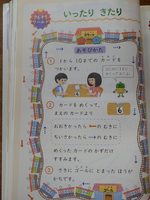 いったり きたり
あそびかた
① 1から 10までの カードを
つかいます。
② カードを めくって、
まえの カードより
6
おおきかったら ➡ の むきに
ちいさかったら ⬅ の むきに
めくった カードの かずだけ
すすみます。
③ さきに ゴールに とまった ほうが
かちです。